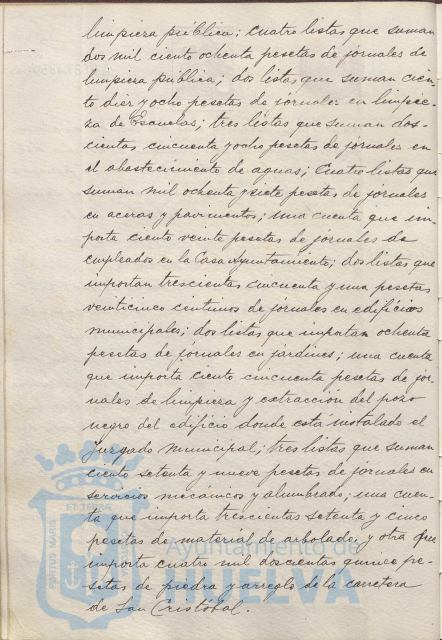 limpieza pública; cuatro listas que suman
dos mil ciento ochenta pesetas de jornales de
limpieza pública; dos listas que suman cien-
to diez y ocho pesetas de jornales en limpie-
za de Escuelas; tres listas que suman dos
cientas cincuenta y ocho pesetas de jornales en
el abastecimiento de aguas; cuatro listas que
suman mil ochenta y siete pesetas de jornales
en aceras y pavimentos; una cuenta que im-
porta ciento veinte pesetas de jornales de
empleados en la Casa Ayuntamiento; dos listas que
importan trescientas cincuenta y una pesetas
veinticinco céntimos de jornales en edificios
municipales; dos listas que importan ochenta
pesetas de jornales en jardines; una cuenta
que importa ciento cincuenta pesetas de jor-
nales de limpieza y extracción del pozo
negro del edificio donde está instalado el
Juzgado municipal; tres listas que suman
ciento setenta y nueve pesetas de jornales en
servicios mecánicos y alumbrado; una cuen-
ta que importa trescientas setenta y cinco
pesetas de material de arbolado, y otra que
importa cuatro mil doscientas quince pe-
setas de piedra y arreglo de la carretera
de San Cristóbal.
PORTUS MARIS
ET TERRÆ
Ayuntamiento de
HUELVA